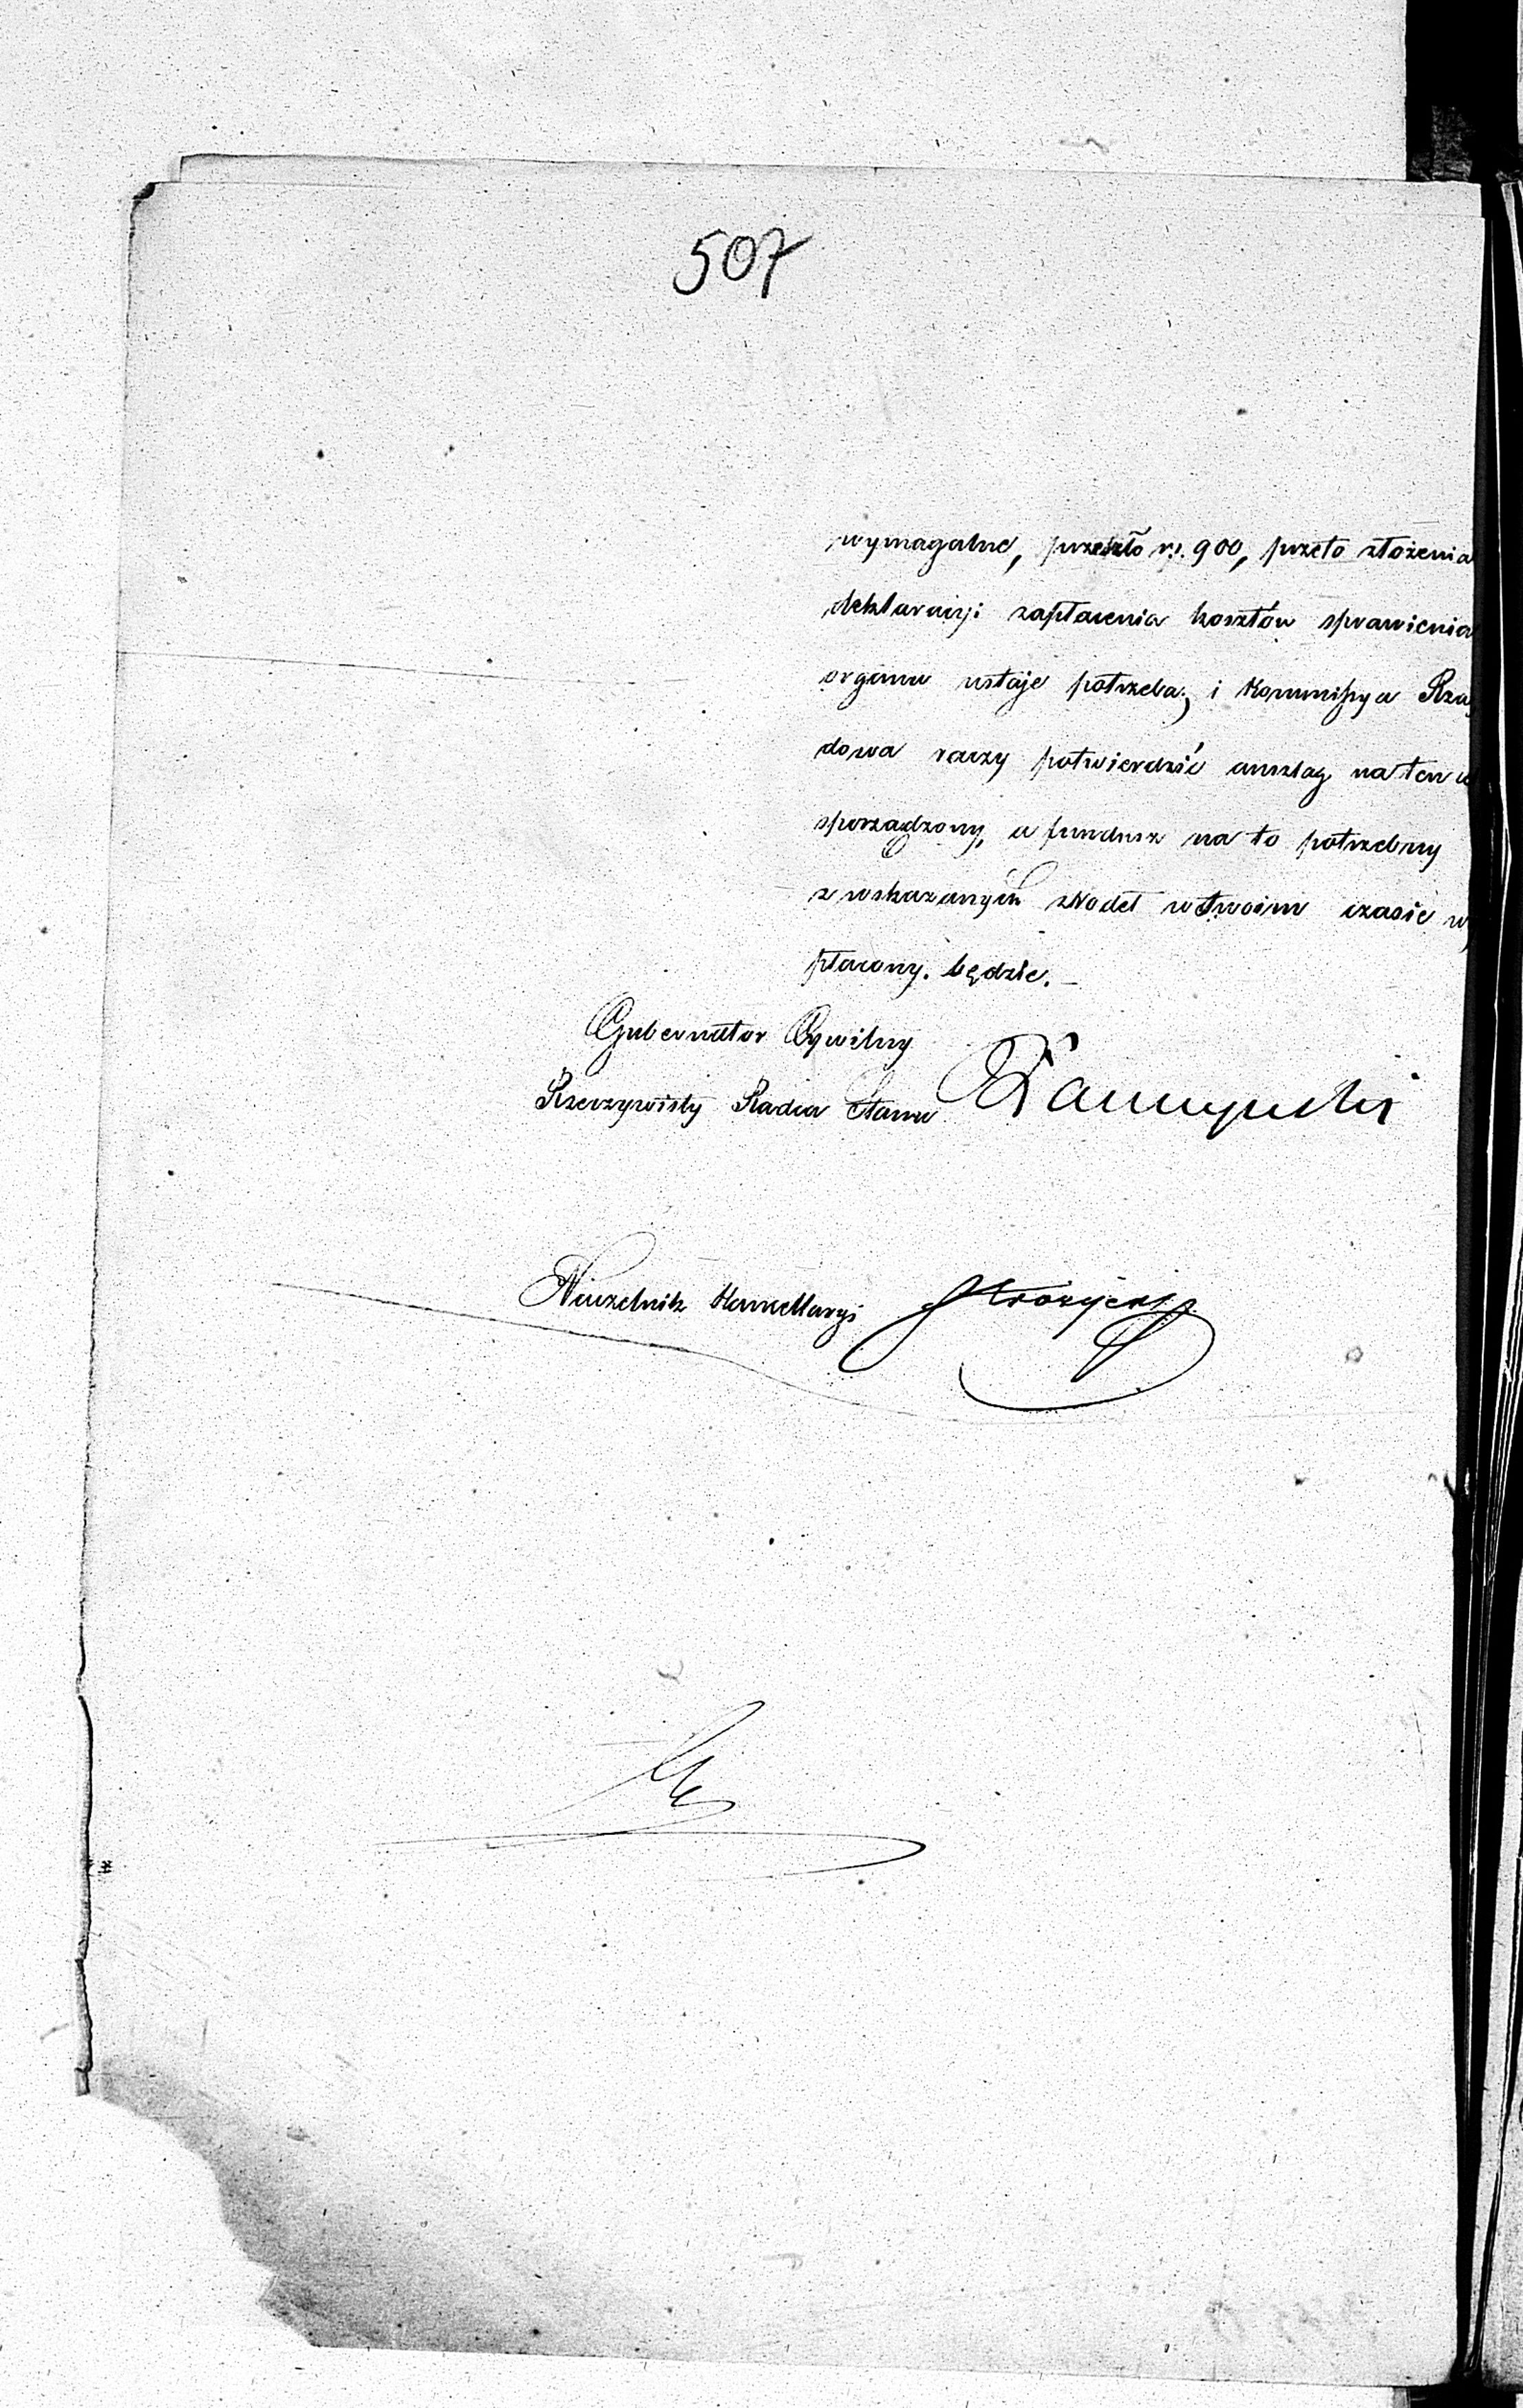 507
wymagalne, przeszło rs. 900, przeto złożenia
deklaracyi zapłacenia kosztów sprawienia
organu ustaje potrzeba; i Kommissya Rzą
dowa raczy potwierdzić anszlag na ten
sporządzony, a fundusz na to potrzebny
z wskazanych źródeł w swoim czasie wy
płacony będzie.
Gubernator Cywilny
Rzeczywisty Radca Stanu
Naczelnik Kancellaryi